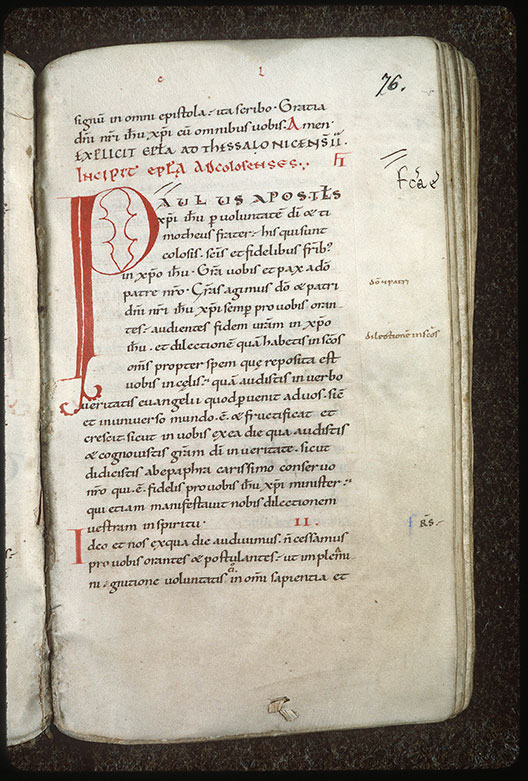 e l
76.
signū in omni epistola. ita scribo. Gratia
dn̄i nr̄i ih̄u xp̄i cū omnibus vobis. Amen.
EXPLICIT EPL̄A AD THESSALONICENSII.
INCIPIT EPL̄A AD COLOSENSES.
PAULUS APOSTL̄S
xp̄i ih̄u p voluntatē dī & ti
motheus frater. his qui sunt
colosis. sc̄is et fidelibus fr̄ib;
in xp̄o ih̄u. Gr̄a vobis et pax a dō
patre nr̄o. Gr̄as agimus dō & patri
dn̄i nr̄i ih̄u xp̄i semp pro vobis oran
tes. audientes fidem ur̄am in xp̄o
ih̄u. et dilectionē quā habetis in sc̄os
om̄s propter spem quę reposita est
vobis in cęlis. quā audistis in verbo
veritatis evangelii quod pvenit ad vos. sic̄
et in universo mundo .ē. & fructificat et
crescit. sicut in vobis ex ea die qua audistis
& cognovistis gr̄am dī in veritate. sicut
didicistis ab epaphra carissimo conservo
nr̄o qui .ē. fidelis pro vobis ih̄u xp̄i minister.
qui etiam manifestavit nobis dilectionem
vestram in spiritu. II.
Ideo et nos ex qua die audivimus. n̄ cessamus
pro vobis orantes & postulantes. ut impleam̄i
ni. gitione voluntatis in om̄i sapientia et
dō & patri
dilectionē in sc̄os